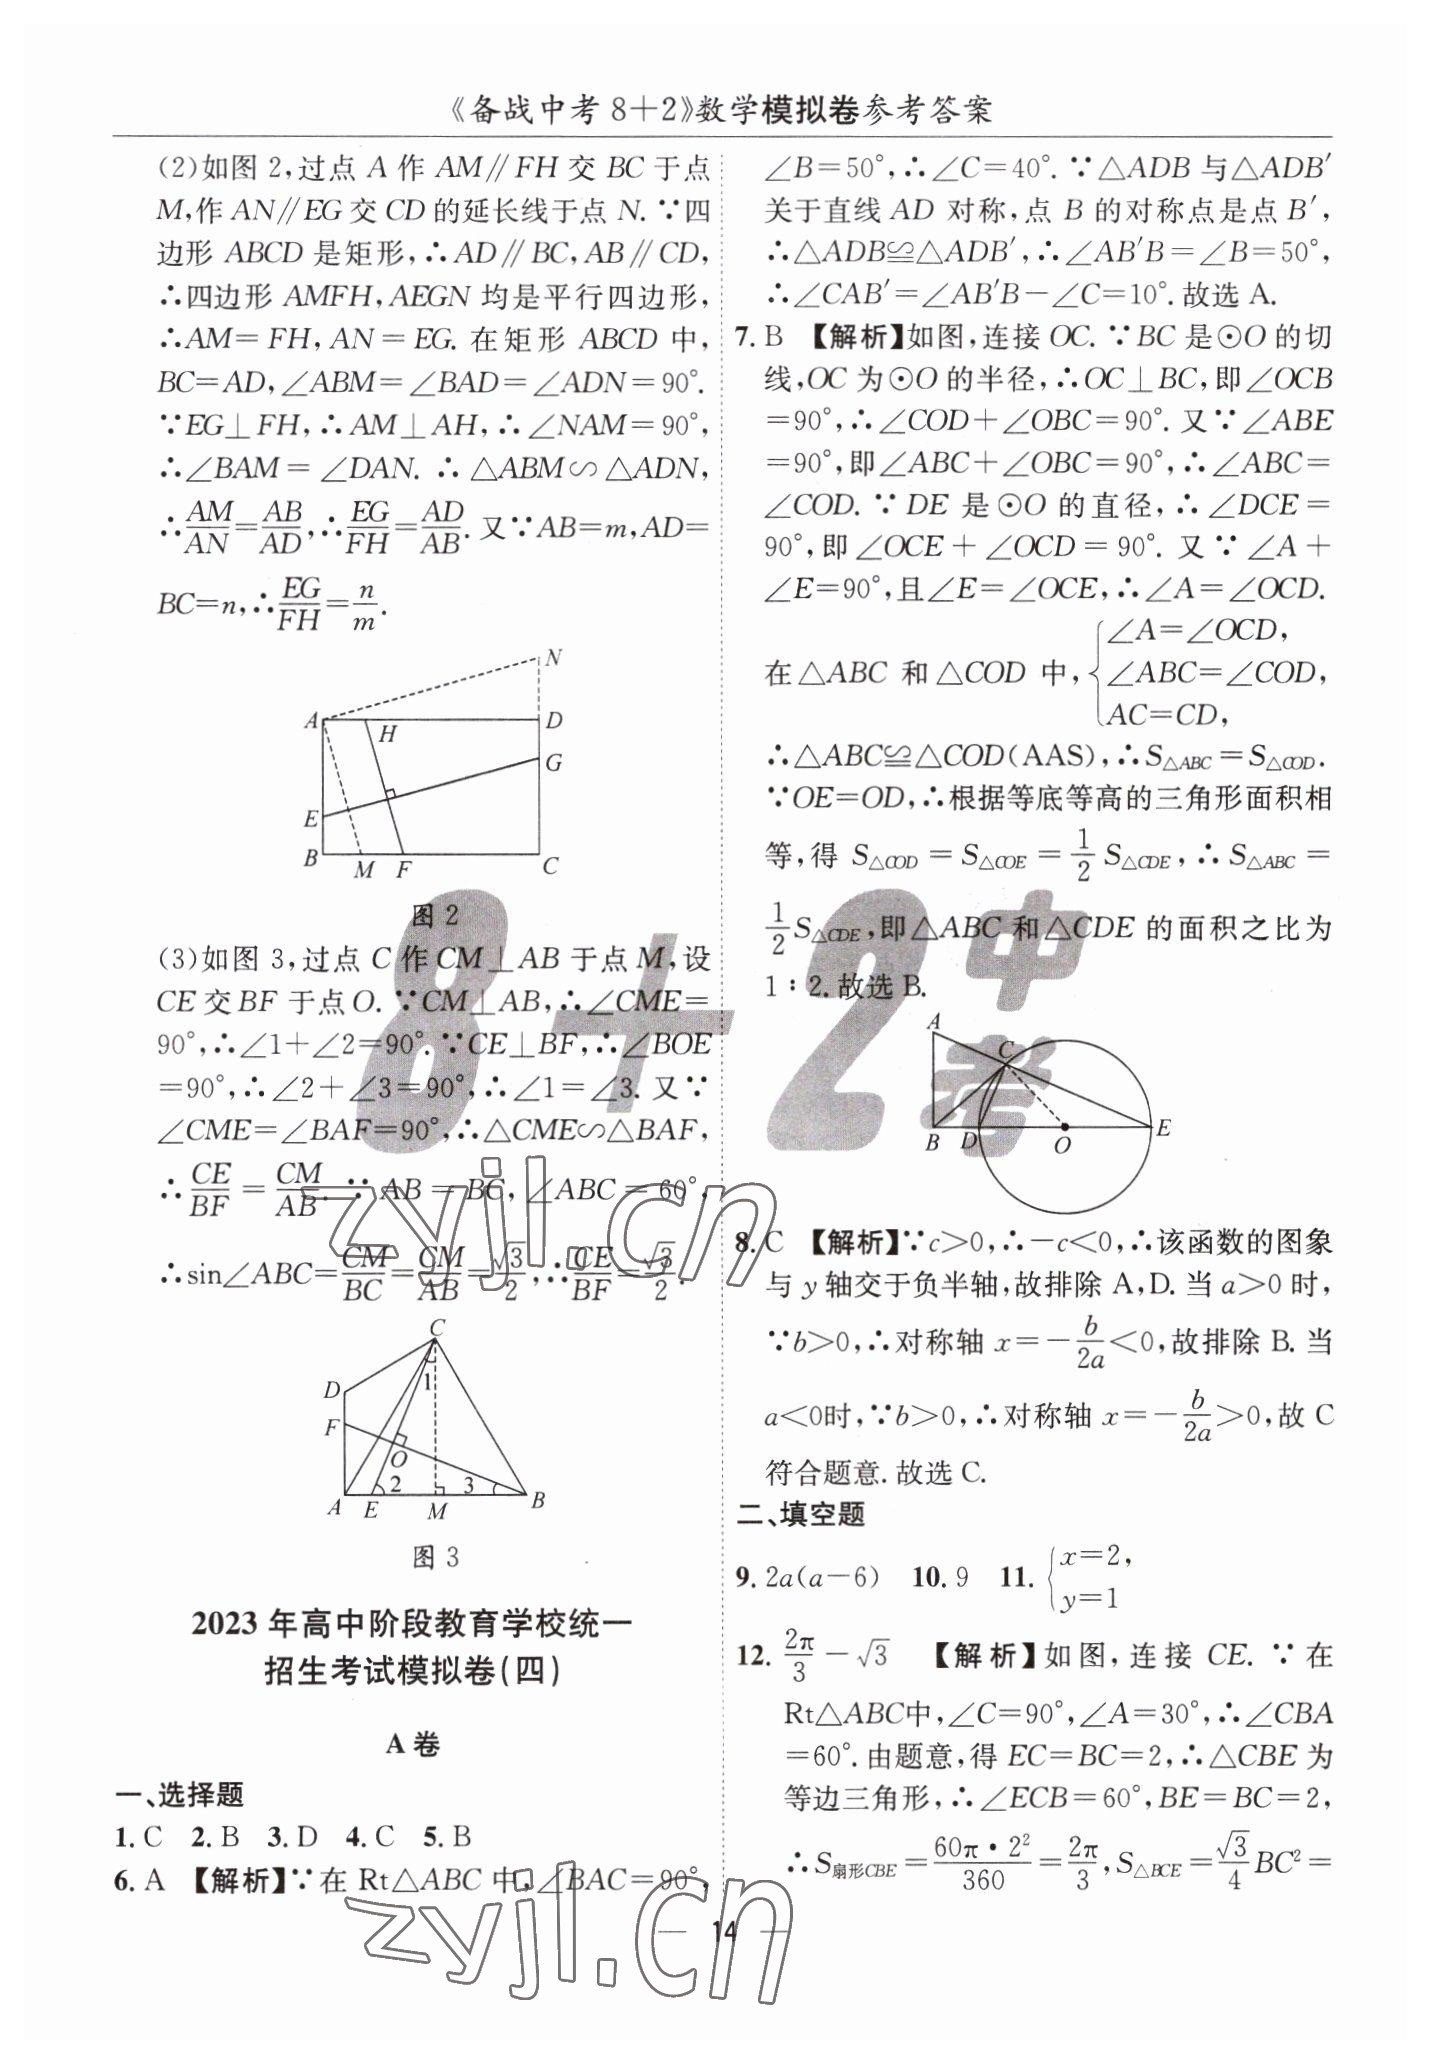 《备战中考8+2》数学模拟卷参考答案
(2)如图2,过点A作AM∥FH交BC于点
M,作AN∥EG交CD的延长线于点N.∵四
边形ABCD是矩形,∴AD∥BC,AB∥CD,
∴四边形AMFH,AEGN均是平行四边形,
∴AM=FH,AN=EG.在矩形ABCD中,
BC=AD,∠ABM=∠BAD=∠ADN=90°.
∵EG⊥FH,∴AM⊥AH,∴∠NAM=90°,
∴∠BAM=∠DAN.∴△ABM∽△ADN,
∴AM/AN=AB/AD,∴EG/FH=AD/AB.又∵AB=m,AD=
BC=n,∴EG/FH=n/m.
N
A
H
D
G
E
B
M
F
C
图2
(3)如图3,过点C作CM⊥AB于点M,设
CE交BF于点O.∵CM⊥AB,∴∠CME=
90°,∴∠1+∠2=90°.∵CE⊥BF,∴∠BOE
=90°,∴∠2+∠3=90°,∴∠1=∠3.又∵
∠CME=∠BAF=90°,∴△CME∽△BAF,
∴CE/BF=CM/AB.∵AB=BC,∠ABC=60°,
∴sin∠ABC=CM/BC=CM/AB=√3/2,∴CE/BF=√3/2.
C
1
D
F
O
2
3
A
E
M
B
图3
2023年高中阶段教育学校统一
招生考试模拟卷(四)
A卷
一、选择题
1.C 2.B 3.D 4.C 5.B
6.A 【解析】∵在Rt△ABC中,∠BAC=90°,
∠B=50°,∴∠C=40°.∵△ADB与△ADB′
关于直线AD对称,点B的对称点是点B′,
∴△ADB≌△ADB′,∴∠AB′B=∠B=50°,
∴∠CAB′=∠AB′B-∠C=10°.故选A.
7.B 【解析】如图,连接OC.∵BC是⊙O的切
线,OC为⊙O的半径,∴OC⊥BC,即∠OCB
=90°,∴∠COD+∠OBC=90°.又∵∠ABE
=90°,即∠ABC+∠OBC=90°,∴∠ABC=
∠COD.∵DE是⊙O的直径,∴∠DCE=
90°,即∠OCE+∠OCD=90°.又∵∠A+
∠E=90°,且∠E=∠OCE,∴∠A=∠OCD.
∠A=∠OCD,
在△ABC和△COD中,{∠ABC=∠COD,
AC=CD,
∴△ABC≌△COD(AAS),∴S△ABC=S△COD.
∵OE=OD,∴根据等底等高的三角形面积相
等,得S△COD=S△COE=1/2S△CDE,∴S△ABC=
1/2S△CDE,即△ABC和△CDE的面积之比为
1∶2.故选B.
A
C
B
D
O
E
8.C 【解析】∵c>0,∴-c<0,∴该函数的图象
与y轴交于负半轴,故排除A,D.当a>0时,
∵b>0,∴对称轴x=-b/2a<0,故排除B.当
a<0时,∵b>0,∴对称轴x=-b/2a>0,故C
符合题意.故选C.
二、填空题
9.2a(a-6) 10.9 11.{x=2,
y=1
12.2π/3-√3 【解析】如图,连接CE.∵在
Rt△ABC中,∠C=90°,∠A=30°,∴∠CBA
=60°.由题意,得EC=BC=2,∴△CBE为
等边三角形,∴∠ECB=60°,BE=BC=2,
∴S扇形CBE=60π·2²/360=2π/3,S△BCE=√3/4BC²=
— 14 —
8+2中考
zyjl.cn
zyjl.cn